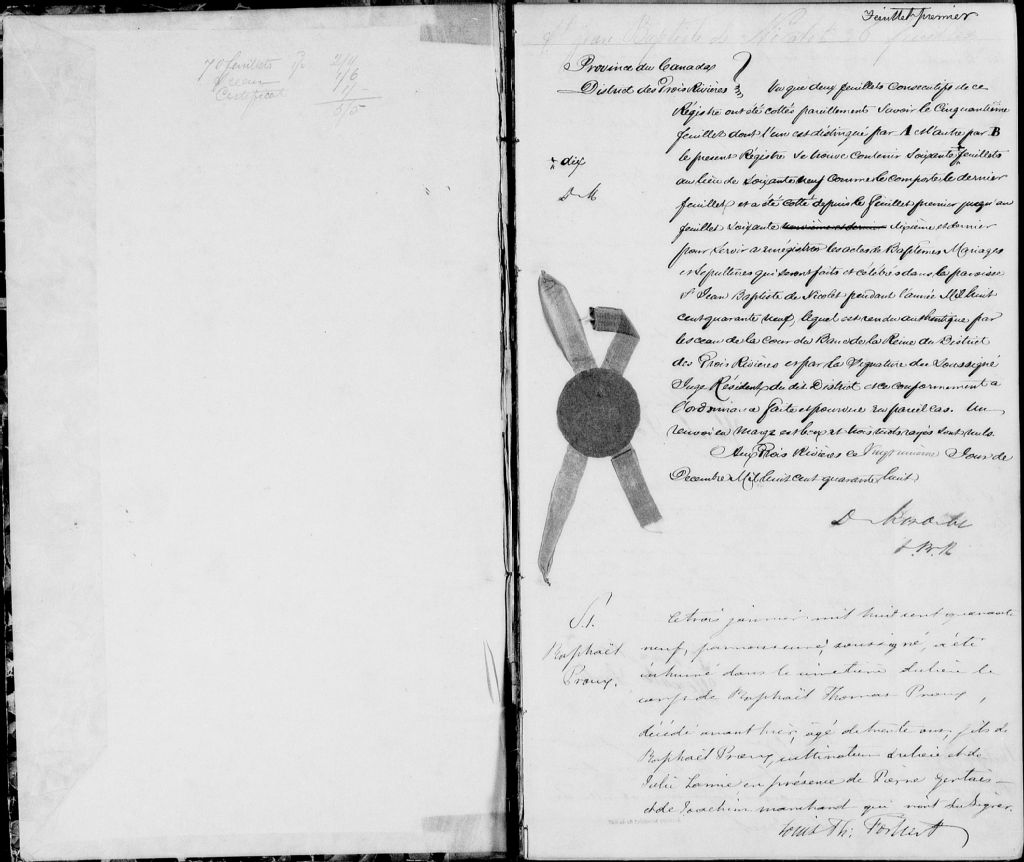 70 feuillets
Sceau
Certificat
5/5
Feuillet premier
St Jean Baptiste de Nicolet 70 feuillets
Province du Canada
District des Trois Rivières
Vu que deux feuillets consecutifs de ce
Régistre ont été cottés pareillement Savoir le Cinquantième
feuillet dont l'un est distingué par A et l'autre par B
le present Régistre se trouve contenir Soixante feuillets
dix
au lieu de Soixante neuf comme le comporte le dernier
D M
feuillet et a été cotté depuis le feuillet premier jusqu'au
feuillet Soixante neuvième et dernier dixième et dernier
pour servir a enrégistrer les actes de Baptêmes Mariages
et Sepultures qui seront faits et célébrés dans la paroisse
St Jean Baptiste de Nicolet pendant l'année Mil huit
cent quarante neuf, lequel est rendu authentique par
le sceau de la Cour du Banc de la Reine du District
des Trois Rivières et par la Signature du Soussigné
Juge Résident du dit District et ce conformement a
l'ordonnance faite et pourvue en pareil cas. Un
renvoi en marge est bon et trois mots rayés sont nuls.
Aux Trois Rivières ce Vingt unieme Jour de
Decembre Mil huit cent quarante huit
D
J.B.R
S1.
Raphaël
Proux.
Le trois janvier mil huit cent quarante
neuf, par nous curé soussigné, a été
inhumé dans le cimetière du lieu le
corps de Raphaël Thomas Proux,
décédé avant hier, agé de trente ans, fils de
Raphaël Proux, cultivateur du lieu et de
Julie en présence de Pierre
et de Joachim Marchand qui n'ont su signer.
Louis Th. Fortier